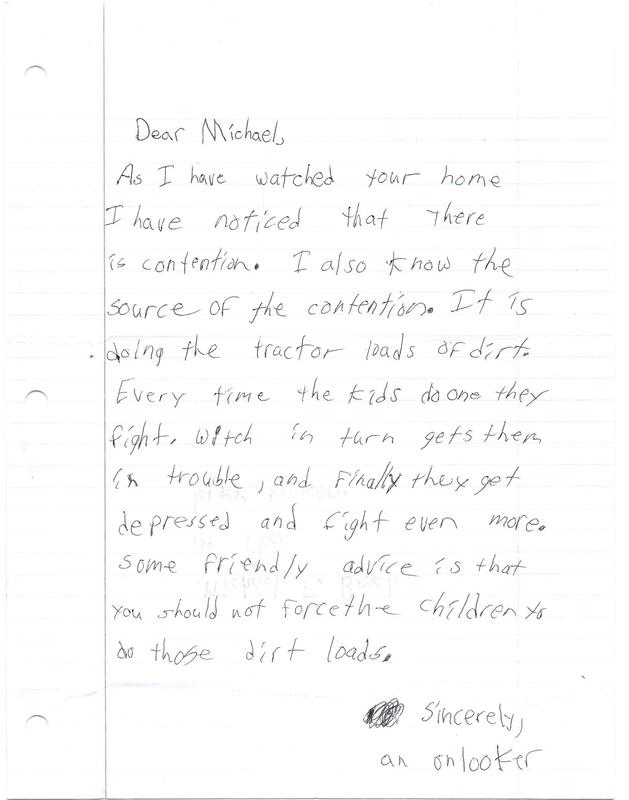 Dear Michael,
As I have watched your home
I have noticed that There
is contention. I also know the
source of the contention. It is
doing the tractor loads of dirt.
Every time the kids do one they
fight. Witch in turn gets them
in trouble, and finally they get
depressed and fight even more.
Some friendly advice is that
you should not force the children to
do those dirt loads.
Sincerely,
an onlooker